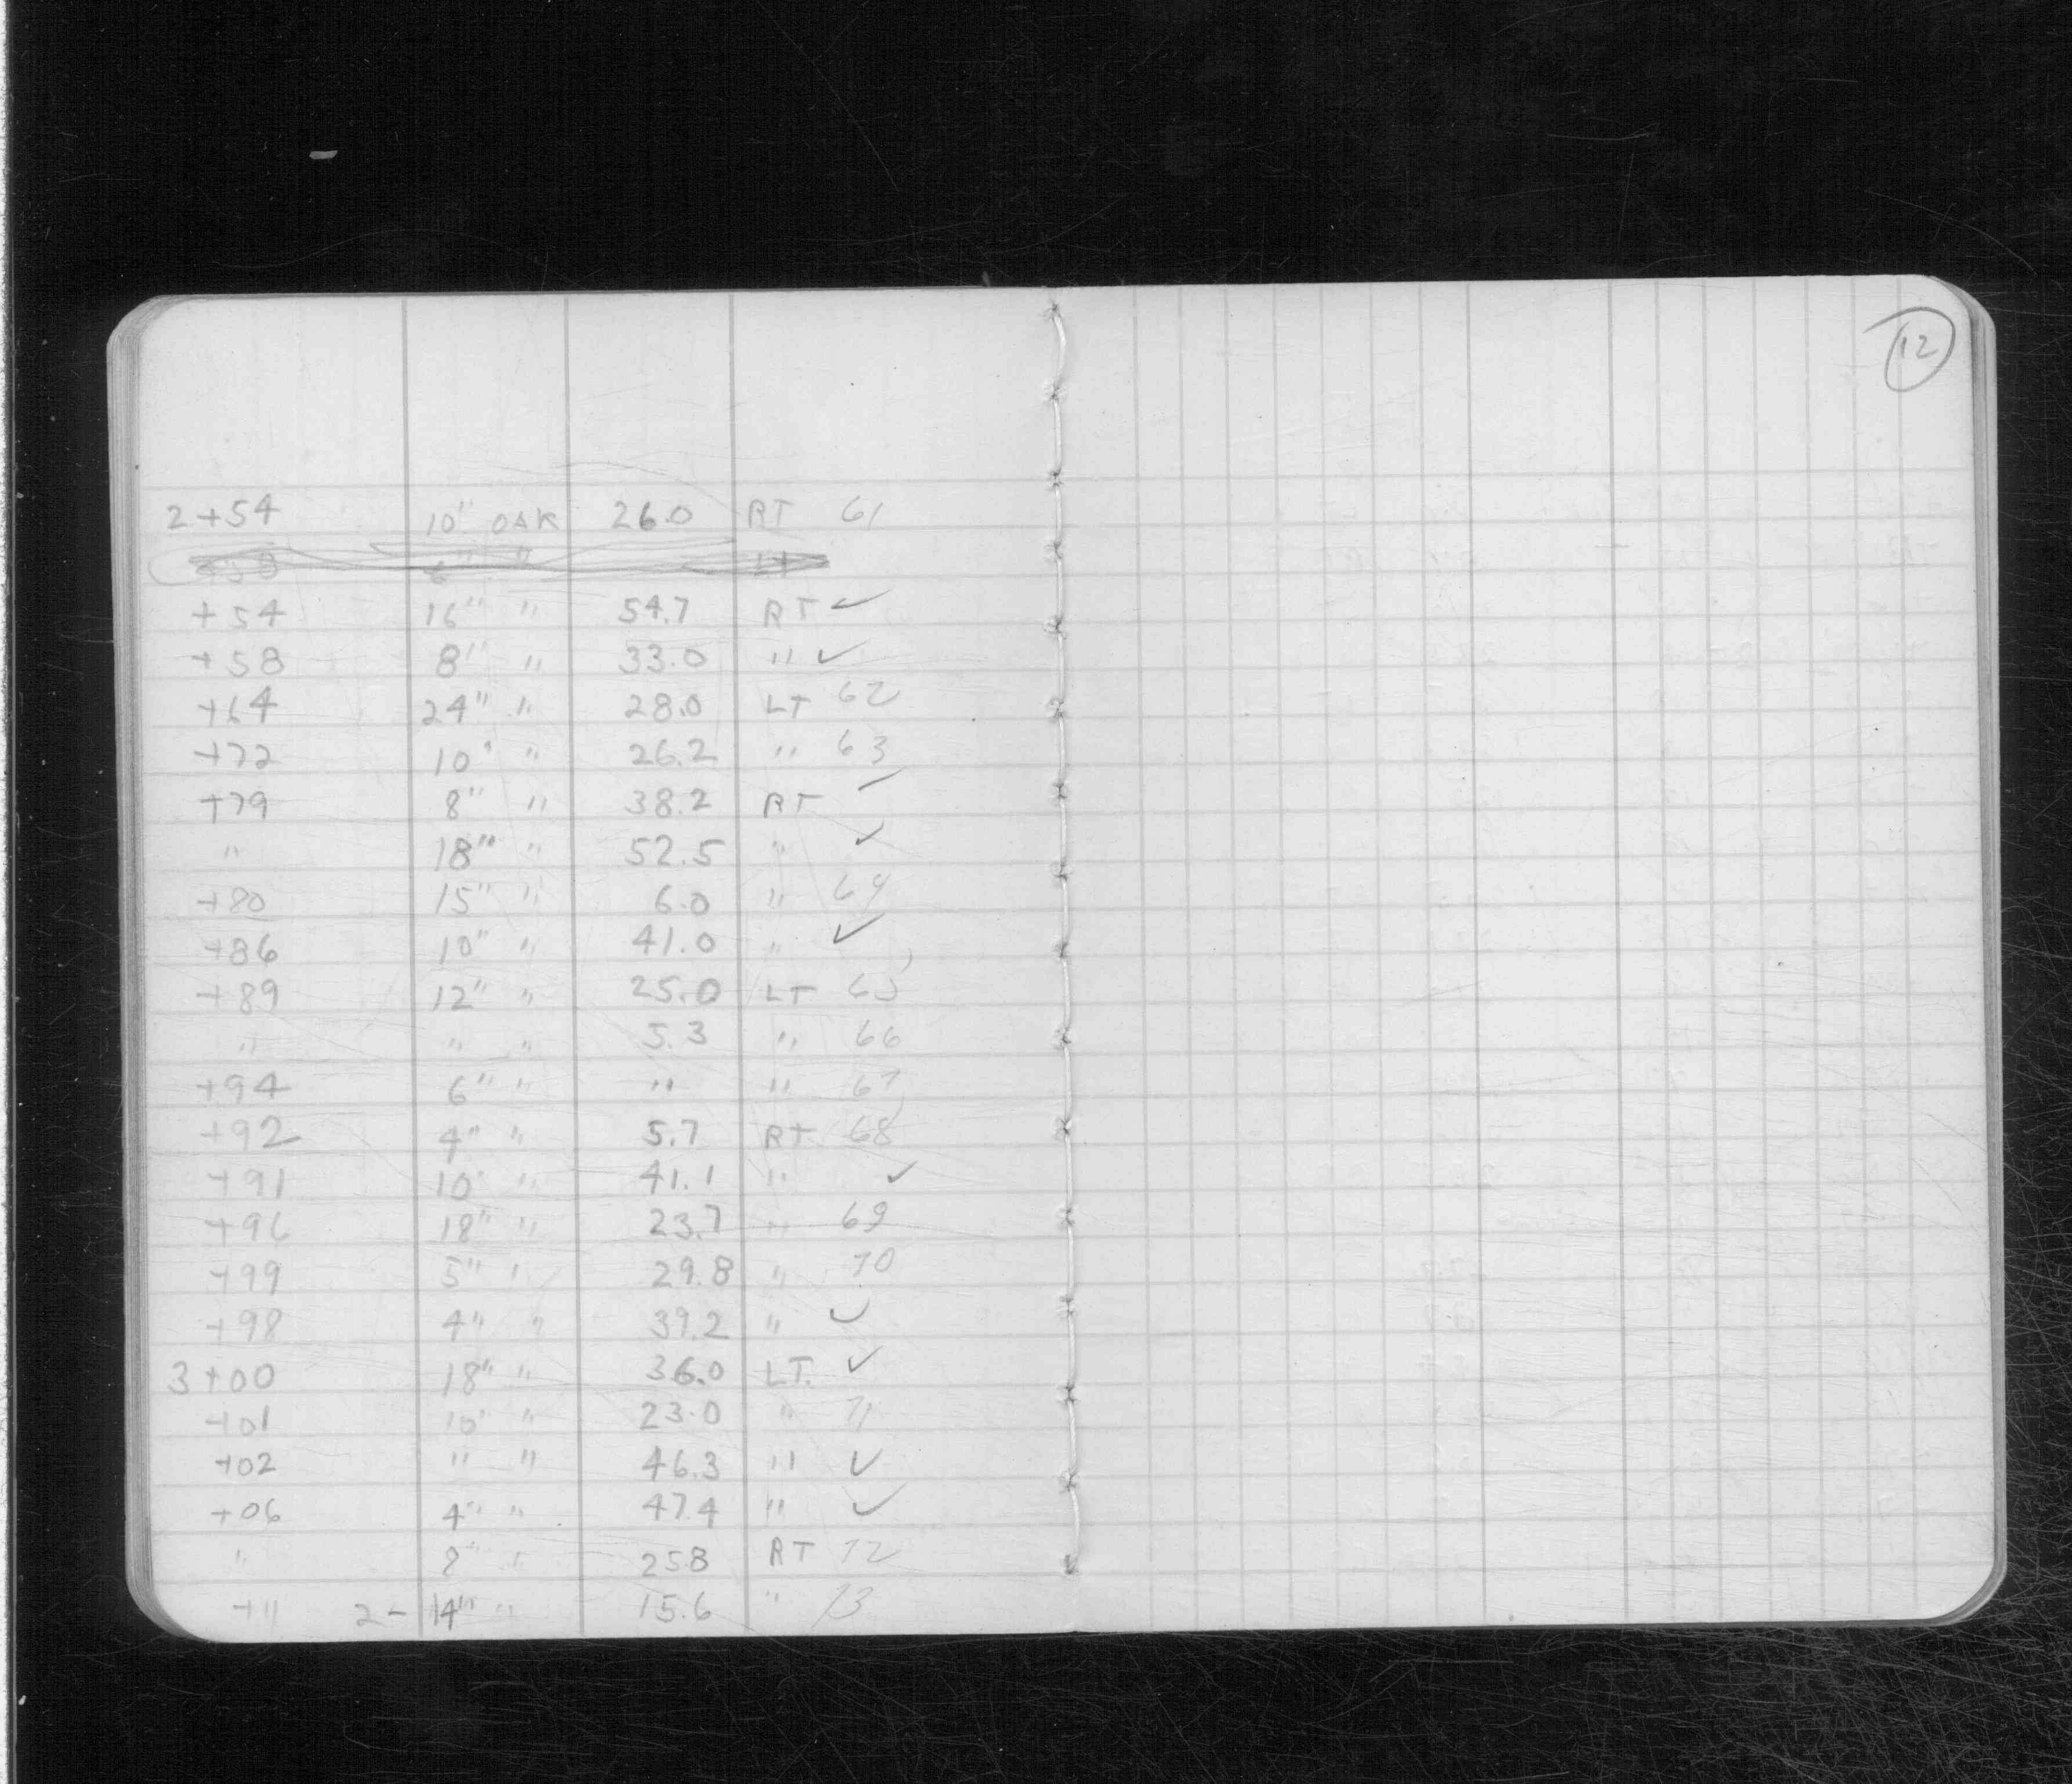 12
2+54 10" OAK 26.0 RT 61
+54 16" " 54.7 RT ✓
+58 8" " 33.0 " ✓
+64 24" " 28.0 LT 62
+72 10" " 26.2 " 63
+79 8" " 38.2 RT ✓
" 18" " 52.5 " ✓
+80 15" " 6.0 " 64
+86 10" " 41.0 " ✓
+89 12" " 25.0 LT 65
" " " 5.3 " 66
+94 6" " " " 67
+92 4" " 5.7 RT 68
+91 10" " 41.1 " ✓
+96 18" " 23.7 " 69
+99 5" " 29.8 " 70
+98 4" " 39.2 " ✓
3+00 18" " 36.0 LT. ✓
+01 10" " 23.0 " 71
+02 " " 46.3 " ✓
+06 4" " 47.4 " ✓
" 8" " 25.8 RT 72
+11 2- 14" " 15.6 " 73